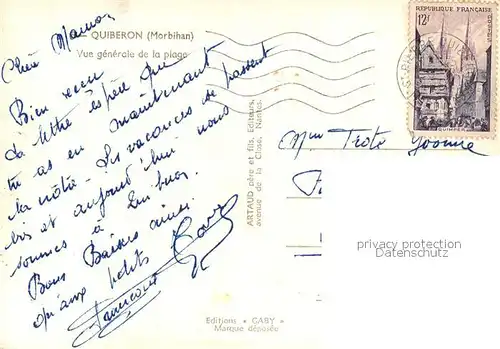 QUIBERON (Morbihan)
Vue générale de la plage
Chère Maman
Bien reçu
ta lettre espère que
tu as en maintenant
la nôtre - Les vacances se passent
bien et aujourd'hui nous
sommes à Quiberon
Bons Baisers ainsi
qu'aux petits
ARTAUD père et fils, Editeurs,
avenue de la Close, Nantes.
REPUBLIQUE FRANÇAISE
12f
QUIMPER
Mme Trote Yvonne
protection privacy
Datenschutz
Editions « GABY »
Marque déposée